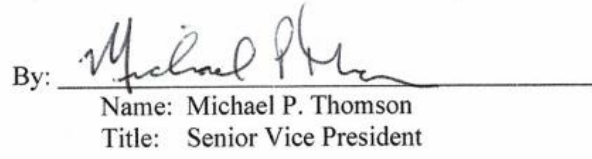 By: Michael P Thomson
Name: Michael P. Thomson
Title: Senior Vice President